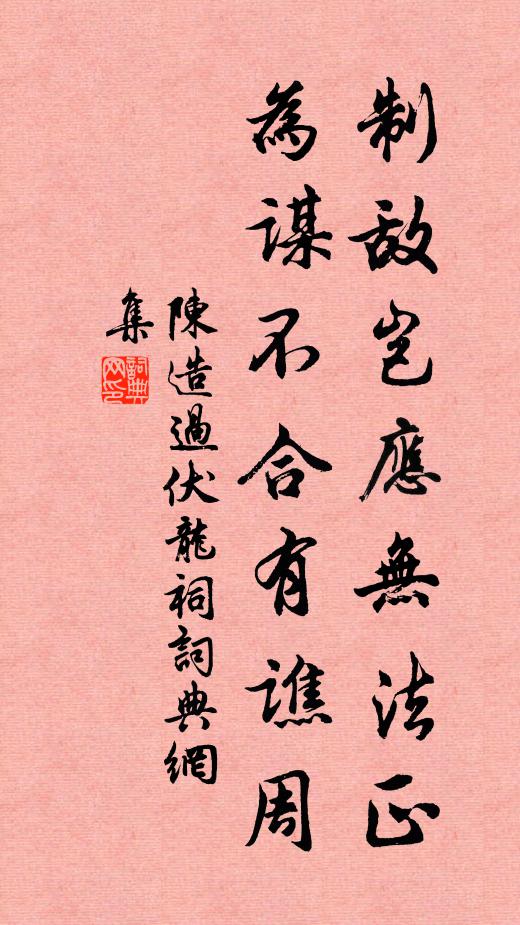 制敵豈應無法正
為謀不合有譙周
陳造過伏龍祠詞典網
集
詞典
网印